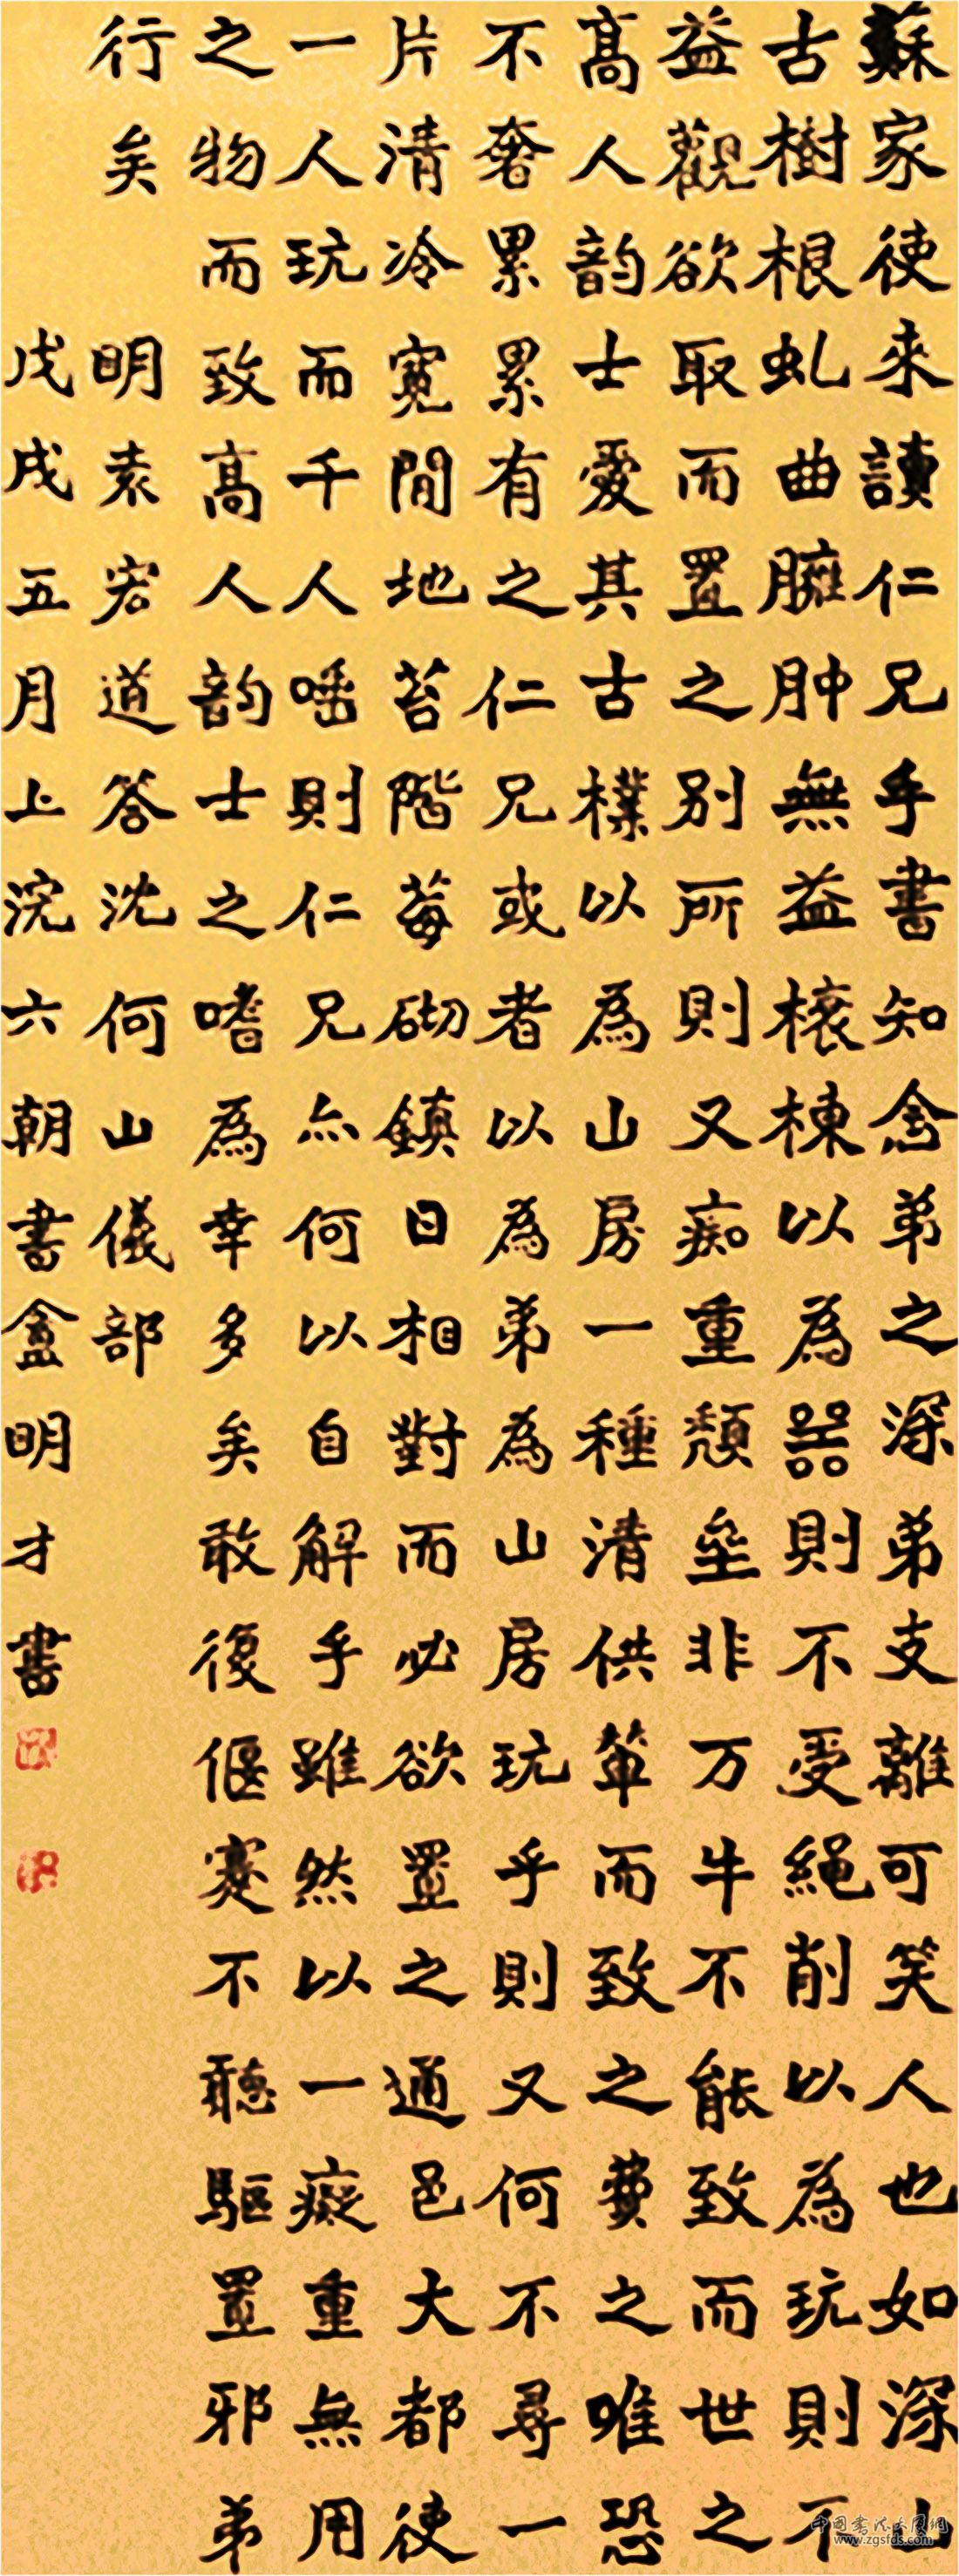 蘇家使來讀仁兄手書知念弟之深弟支離可笑人也如深山
古樹根虬曲臃肿無益榱棟以為器則不受繩削以為玩則不
益觀欲取而置之別所則又痴重頹壘非万牛不能致而世之
高人韵士愛其古樸以為山房一種清供輦而致之費之唯恐
不奢累累有之仁兄或者以為弟為山房玩乎則又何不尋一
片清冷寬閒地苔階莓砌鎮日相對而必欲置之通邑大都使
一人玩而千人唾則仁兄亦何以自解乎雖然以一癡重無用
之物而致高人韵士之嗜為幸多矣敢復偃蹇不聽驅置邪弟
行矣 明袁宏道答沈何山儀部
戊戌五月上浣六朝書盦明才書
www.zgsfds.com